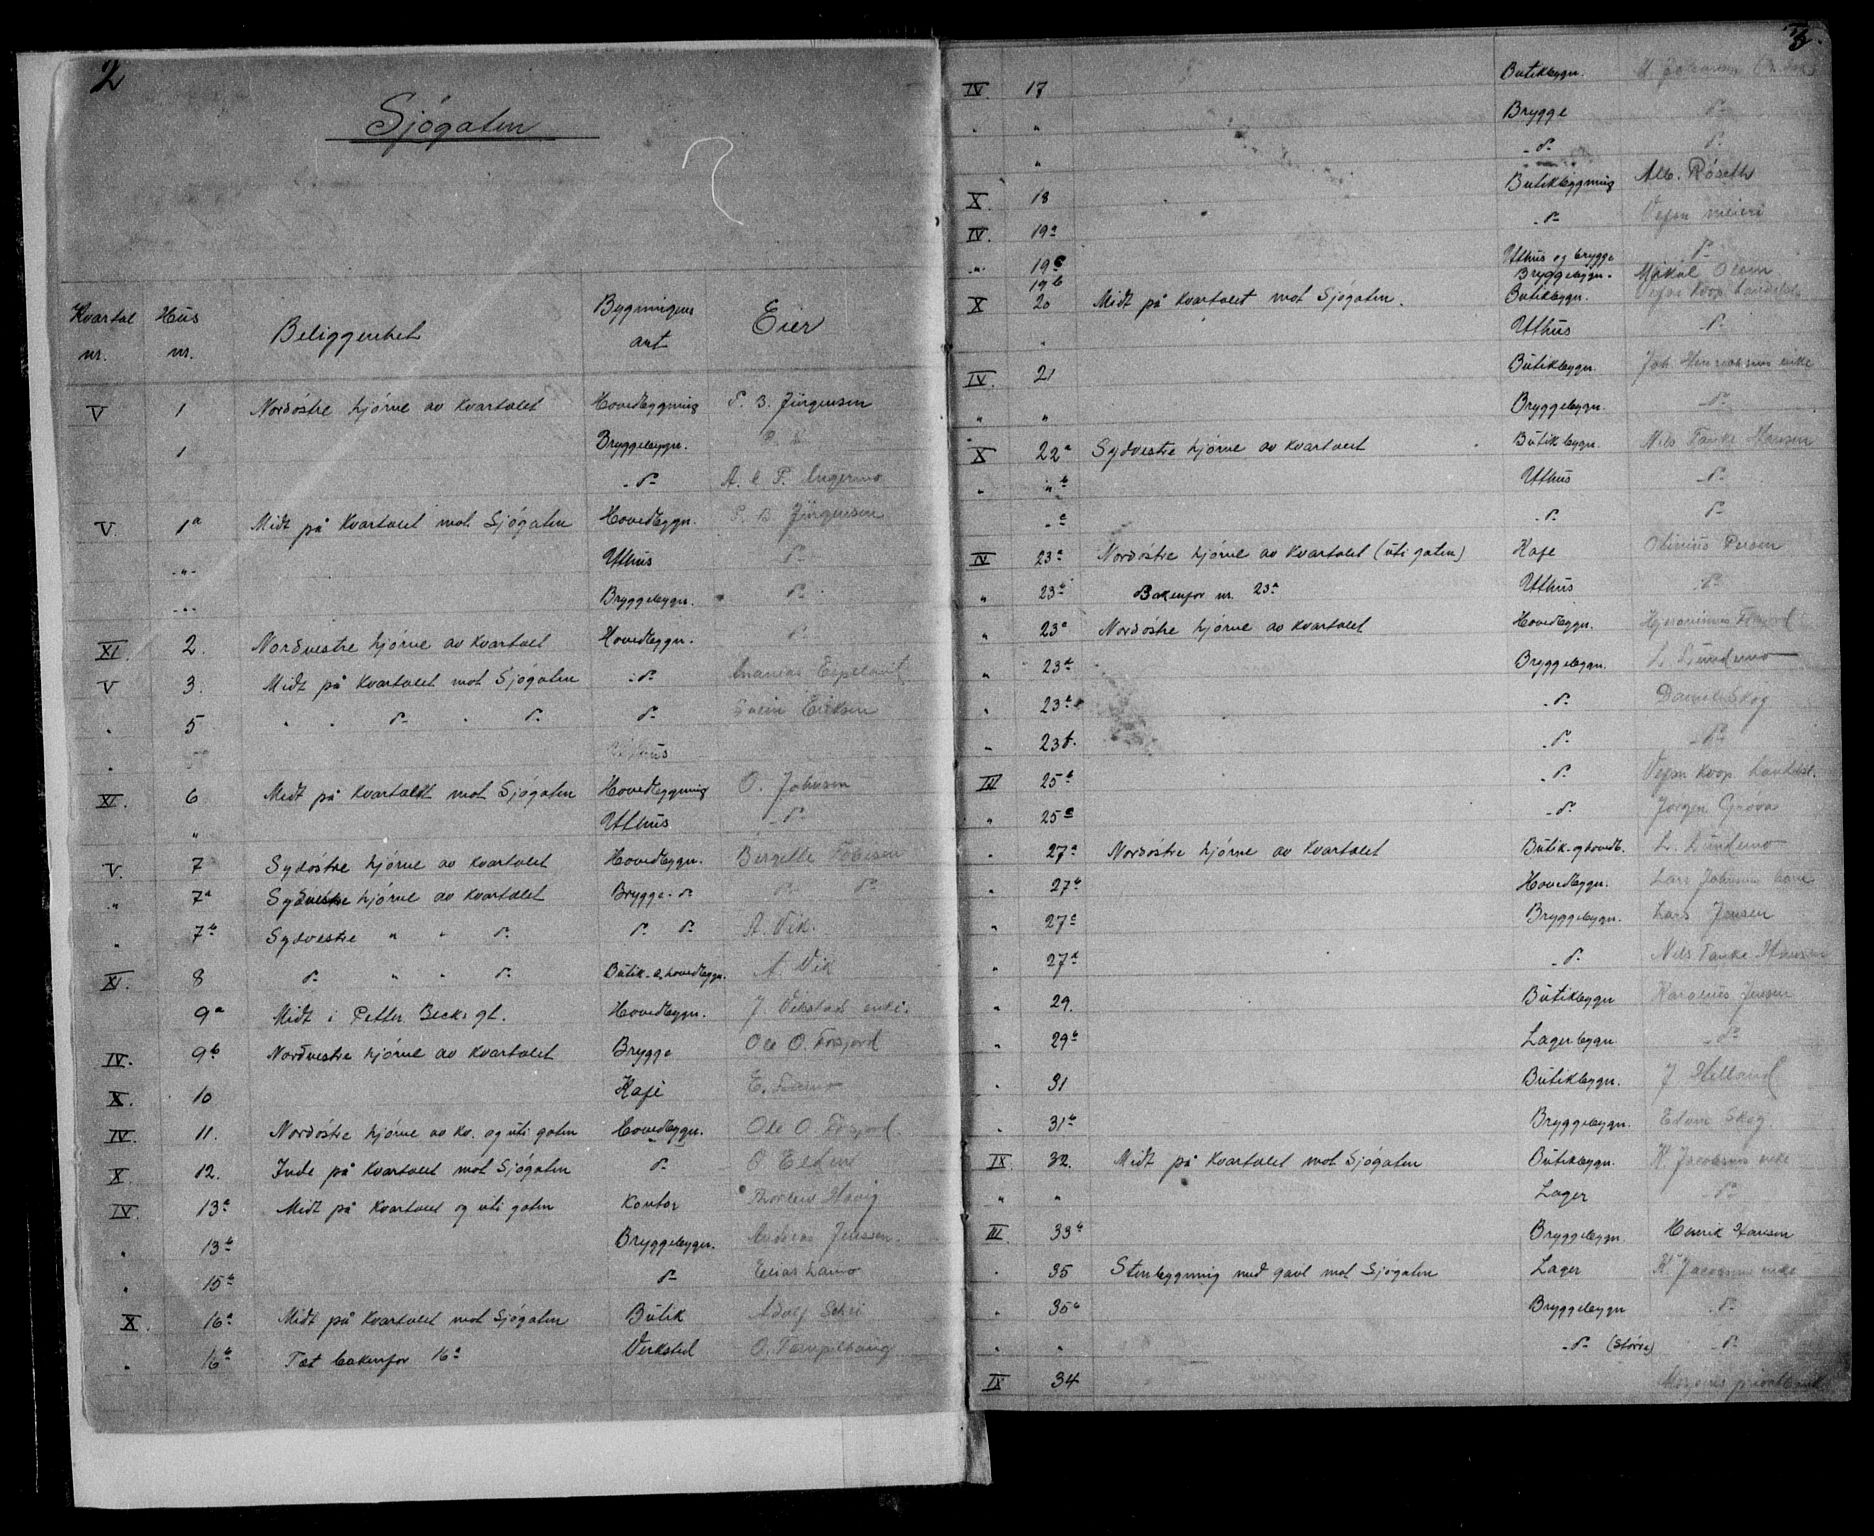 2
Sjögaten
Kvartal nr. Hus nr. Beliggenhet Bygningens art Eier
V 1 Nordöstre hjörne av kvartalet Hovedbygning P. B. Jürgensen
1 Bryggebygn.
-"- A. & P. Angermo
V. 1a Midt på kvartalet mot Sjögaten Hovedbygn. P. B. Jürgensen
-"- Uthus -"-
-"- Bryggebygn. -"-
XI. 2. Nordvestre hjörne av kvartalet Hovedbygn. -"-
V 3. Midt på kvartalet mot Sjögaten -"- Ananias Espelund
" 5 " " -"- " -"- -"- Svein Eriksen
" Uthus
XI. 6 Midt på kvartalet mot Sjögaten Hovedbygning O. Johnsen
" Uthus -"-
V. 7 Sydöstre hjörne av kvartalet Hovedbygn. Bergitte Tobiesen
" 7a Sydvestre hjörne av kvartalet Brygge-"- -"- -"-
" 7b Sydvestre " " -"- -"- -"- A. Vik.
XI. 8 -"- " " -"- Butik- & hovedbygn. A. Vik
9a Midt i Petter Becks gt. Hovedbygn. J. Vikstads enke.
IV. 9b Nordvestre hjörne av kvartalet Brygge Ole O. Forsjord
X. 10 Kafe E.
IV. 11. Nordöstre hjörne av kv. og uti gaten Hovedbygn. Ole O. Forsjord
X. 12. Inde på kvartalet mot Sjögaten -"- O.
IV. 13a Midt på kvartalet og uti gaten Kontor Thorleiv Havig
" 13b Bryggebygn. Andreas Jenssen.
" 15b -"- Elias Lamo
X. 16a Midt på kvartalet mot Sjögaten Butik Adolf
" 16b Tæt bakenfor 16a Verksted O.
3.
IV. 17 Butikbygn.
" " Brygge -"-
" -"- -"-
X 18 Butikbygning Alb. Röseth
IV. 19a -"- Vefsn meieri
-"- 19c Uthus og brygge -"-
19b Bryggebygn. Mikal Olsen
X 20 Midt på kvartalet mot Sjögaten. Butikbygn. Vefsn Koop.
" Uthus -"-
IV 21 Butikbygn. Joh. enke
" " Bryggebygn. -"-
X 22a Sydvestre hjörne av kvartalet Butikbygn. Nils Tanke Hansen
" "b Uthus -"-
" -c -"- -"-
IV 23a Nordöstre hjörne av kvartalet (uti gaten) Kafe Olinius
" 23b Bakenfor nr. 23a Uthus -"-
" 23c Nordöstre hjörne av kvartalet Hovedbygn. Hjeronimus
" 23d Bryggebygn. L. Lundemo
" 23e -"- Daniel Skog
" 23f. -"- -"-
III 25b -"- Vefsn Koop. Handelsl.
" 25c -"- Jörgen
" 27a Nordöstre hjörne av kvartalet Butik- og hovedb. L. Lundemo
" 27b Hovedbygn. Lars
" 27c Bryggebygn. Lars Jensen
" 27d -"- Nils Tanke Hansen
" 29. Butikbygn Karolius Jensen
" 29b Lagerbygn -"-
" 31 Butikbygn. J
" 31b Bryggebygn. Edvin Skog
IX 32. Midt på kvartalet mot Sjögaten Butikbygn. K. Jacobsens enke
" " Lager -"-
III 33b Bryggebygn. Henrik Hansen
" 35 Stenbygning med gavl mot Sjögaten Lager K. Jacobsens enke
" 35b Bryggebygn -"-
" " -"- (större) -"-
IX 34 privatbank